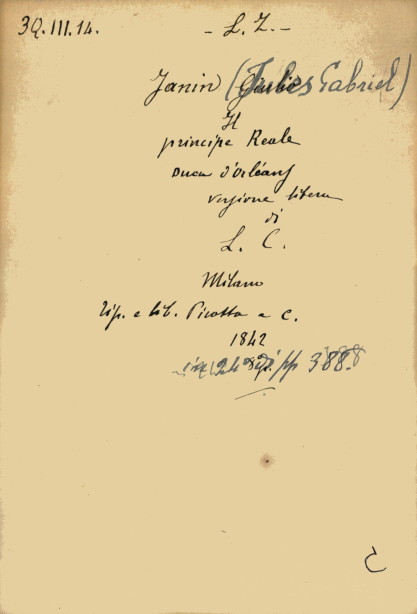 3Q.III.14. - L. Z. -
Janin Giulio (Jules Gabriel)
Il
principe Reale
Duca d'Orléans
versione libera
di
L. C.
Milano
Tip. e lib. Pirotta e C.
1842
in 24° pp 388.